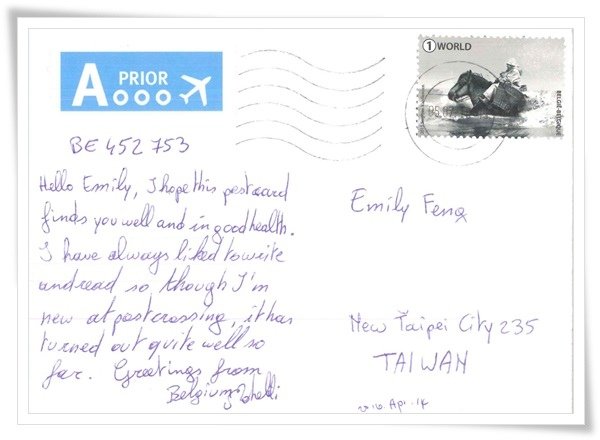 A PRIOR
1 WORLD
BELGIE-BELGIQUE
BE 452 753
Hello Emily, I hope this postcard
finds you well and in good health.
I have always liked to write
and read so though I'm
new at postcrossing, it has
turned out quite well so
far. Greetings from
Belgium
Emily Feng
New Taipei City 235
TAIWAN
Apr. 14